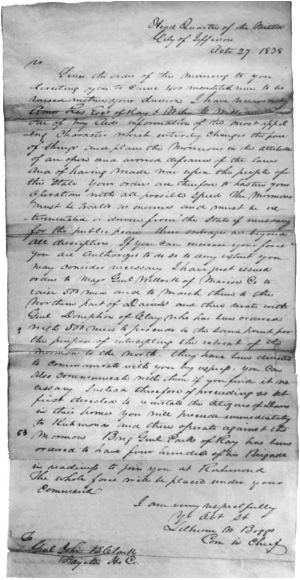 Head Quarters of the Militia
City of Jefferson
Octo 27 1838
Sir
Since the order of the morning to you
directing you to cause 400 mounted men to be
raised within your Division I have received by
Amos Rees Esqr of Ray & Wiley C Williams Esqr
one of my aids information of the most appal
ing Character which entirely changes the face
of things and places the Mormons in the attitude
of an open and avowed defiance of the laws
and of having made war upon the people of
this State Your orders are therefore to hasten your
operations with all possible speed The Mormons
must be treated as enemies and must be ex
terminated or driven from the State if necessary
for the public peace their outrages are beyond
all description If you can increase your force
you are Authorized to do so to any extent you
may consider necessary I have just issued
orders to Major Genl Willock of Marion Co to
raise 500 men and to March them to the
Northern part of Daviess and there unite with
Genl Doniphan of Clay who has been ordered
with 500 men to proceed to the same point for
the purpose of intercepting the retreat of the
Mormon to the North they have been directed
to Communicate with you by express, you can
also Communicate with them if you find it ne
cessary Instead therefore of proceeding as at
first directed to reinstate the Citizens of Daviess
in their homes you will proceed immediately
to Richmond and there operate against the
Mormons Brig Genl Parks of Ray has been
ordered to have four hundred of his Brigade
in readiness to join you at Richmond
The whole force will be placed under your
Command
I am very respectfully
Yr Obt St
Lilburn W Boggs
Com in Chief
To
Genl John B Clark
Fayette Ho. C.